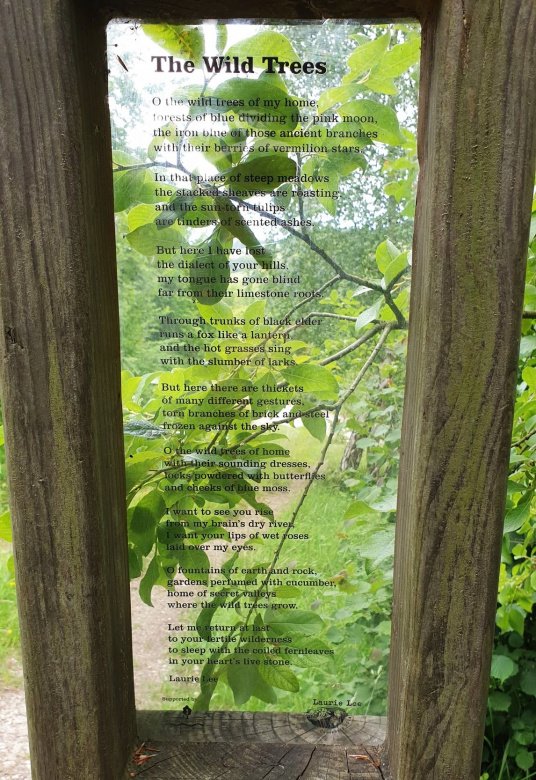 The Wild Trees
O the wild trees of my home,
forests of blue dividing the pink moon,
the iron blue of those ancient branches
with their berries of vermilion stars.
In that place of steep meadows
the stacked sheaves are roasting,
and the sun-torn tulips
are tinders of scented ashes.
But here I have lost
the dialect of your hills,
my tongue has gone blind
far from their limestone roots.
Through trunks of black elder
runs a fox like a lantern,
and the hot grasses sing
with the slumber of larks.
But here there are thickets
of many different gestures,
torn branches of brick and steel
frozen against the sky.
O the wild trees of home
with their sounding dresses,
locks powdered with butterflies
and cheeks of blue moss.
I want to see you rise
from my brain's dry river,
I want your lips of wet roses
laid over my eyes.
O fountains of earth and rock,
gardens perfumed with cucumber,
home of secret valleys
where the wild trees grow.
Let me return at last
to your fertile wilderness
to sleep with the coiled fernleaves
in your heart's live stone.
Laurie Lee
Supported by
Laurie Lee